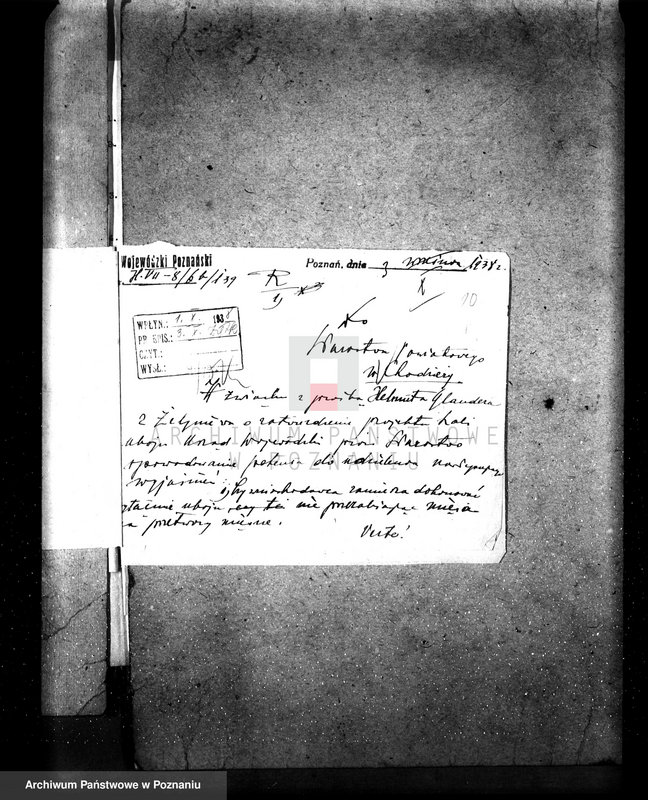 Wojewódzki Poznański
Poznań, dnia 3 1938 r.
H.VII-8/6b/139
R
19
10
WPŁYN.: 1. X. 1938
PR. SPIS.: 3. X.
CZYT.:
WYSŁ.:
Do
Starostwa Powiatowego
w Chodzieży
W związku z prośbą Helmuta Glandera
z o zatwierdzenie projektu hali
uboju Urząd Wojewódzki prosi Starostwo
spowodowanie petenta do udzielenia następując.
wyjaśnień:
1) Czy wnioskodawca zamierza dokonywać
uboju czy też nie mięsa
na przetwory mięsne.
ARCHIWUM PAŃSTWOWE
W POZNANIU
Archiwum Państwowe w Poznaniu